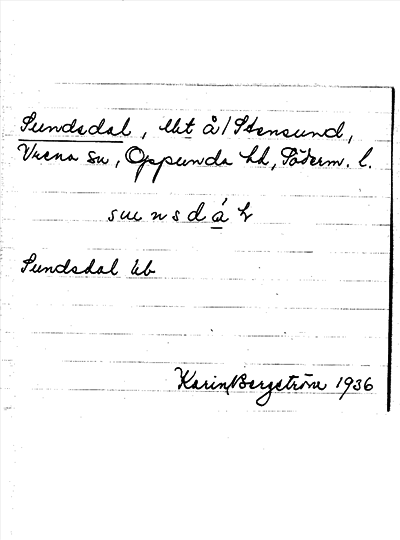 Sundsdal, lht å/Stensund,
Vrena sn, Oppunda hd, Söderm. l.
sundsdá
Sundsdal kb
Karin Bergström 1936